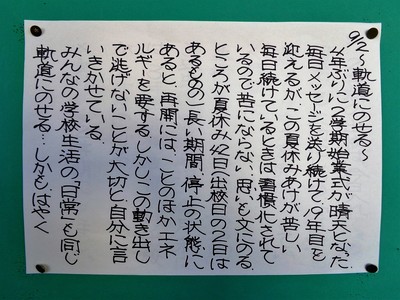 9/2～軌道にのせる～
4年ぶりに2学期始業式が晴天となった。
毎日メッセージを送り続けて19年目を
迎えるが、この夏休みあけが苦しい。
毎日続けているときは習慣化されて
いるので苦にならない。思いを文にのる。
ところが夏休み42日(出校日の2日は
あるものの)長い期間、停止の状態に
あると、再開には、ことのほかエネ
ルギーを要する。しかし、この動き出し
で逃げないことが大切と自分に言
いきかせている。
みんなの学校生活の「日常」も同じ
軌道にのせる…しかもはやく